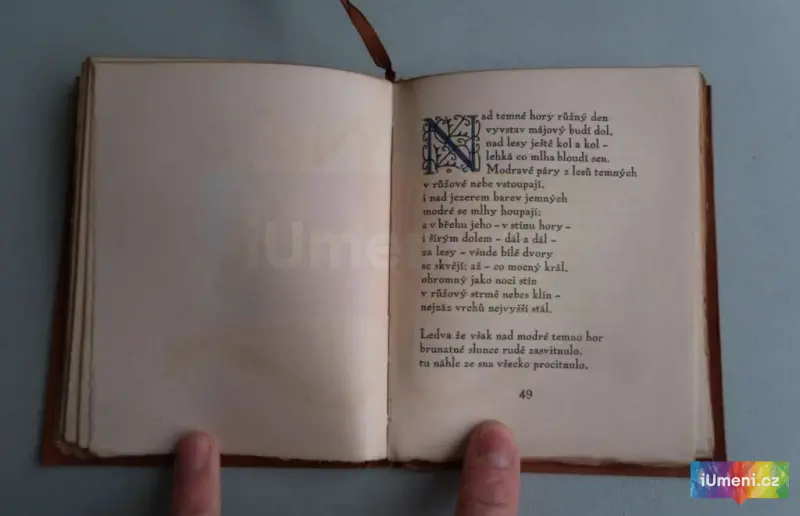 Nad temné hory růžný den
vyvstav májový budí dol,
nad lesy ještě kol a kol –
lehká co mlha bloudí sen.
Modravé páry z lesů temných
v růžové nebe vstoupají,
i nad jezerem barev jemných
modré se mlhy houpají;
a v břehu jeho – v stínu hory –
i šírým dolem – dál a dál –
za lesy – všude bílé dvory
se skvějí; až – co mocný král,
ohromný jako noci stín
v růžový strmě nebes klín –
nejzáz vrchů nejvyšší stál.
Ledva že však nad modré temno hor
brunatné slunce rudě zasvitnulo,
tu náhle ze sna všecko procitnulo,
49
iUmeni.cz